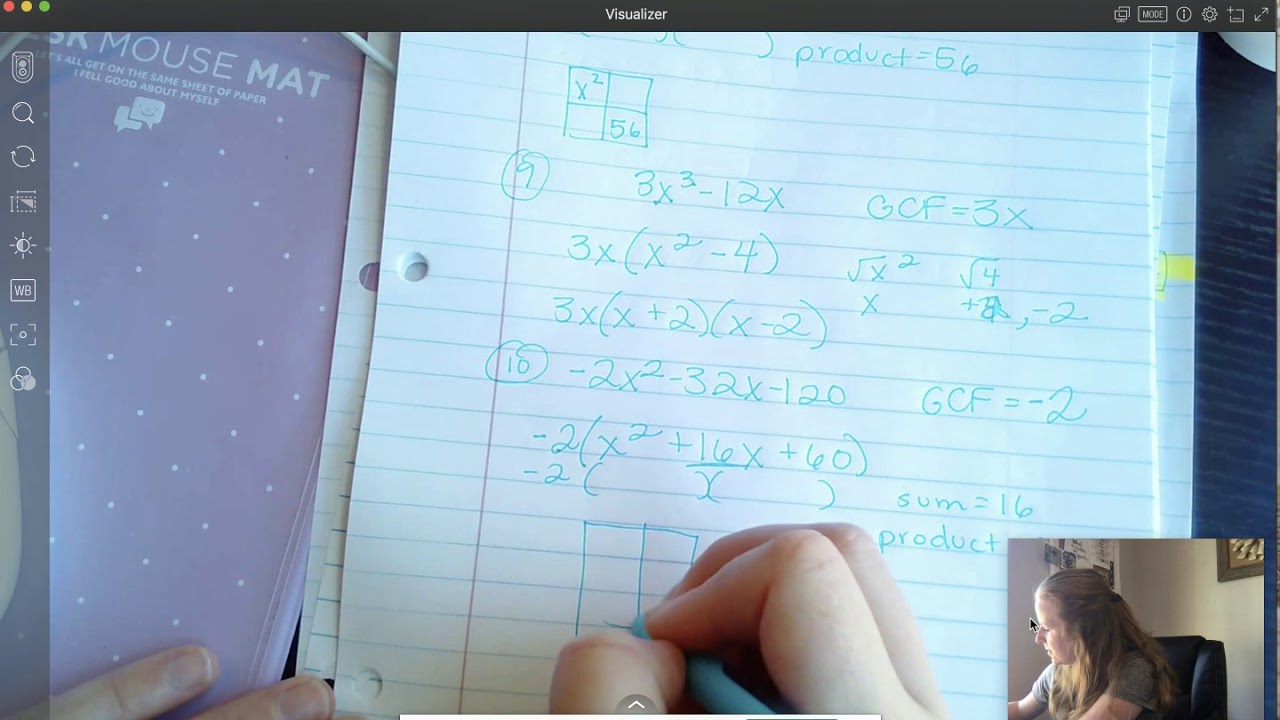 Visualizer
MODE
WB
SK MOUSE MAT
LET'S ALL GET ON THE SAME SHEET OF PAPER
I FEEL GOOD ABOUT MYSELF
product=56
x²
56
9 3x³-12x GCF=3x
3x(x²-4) √x² √4
3x(x+2)(x-2) x , -2
10 -2x²-32x-120 GCF=-2
-2(x²+16x+60)
-2( )( ) sum=16
product